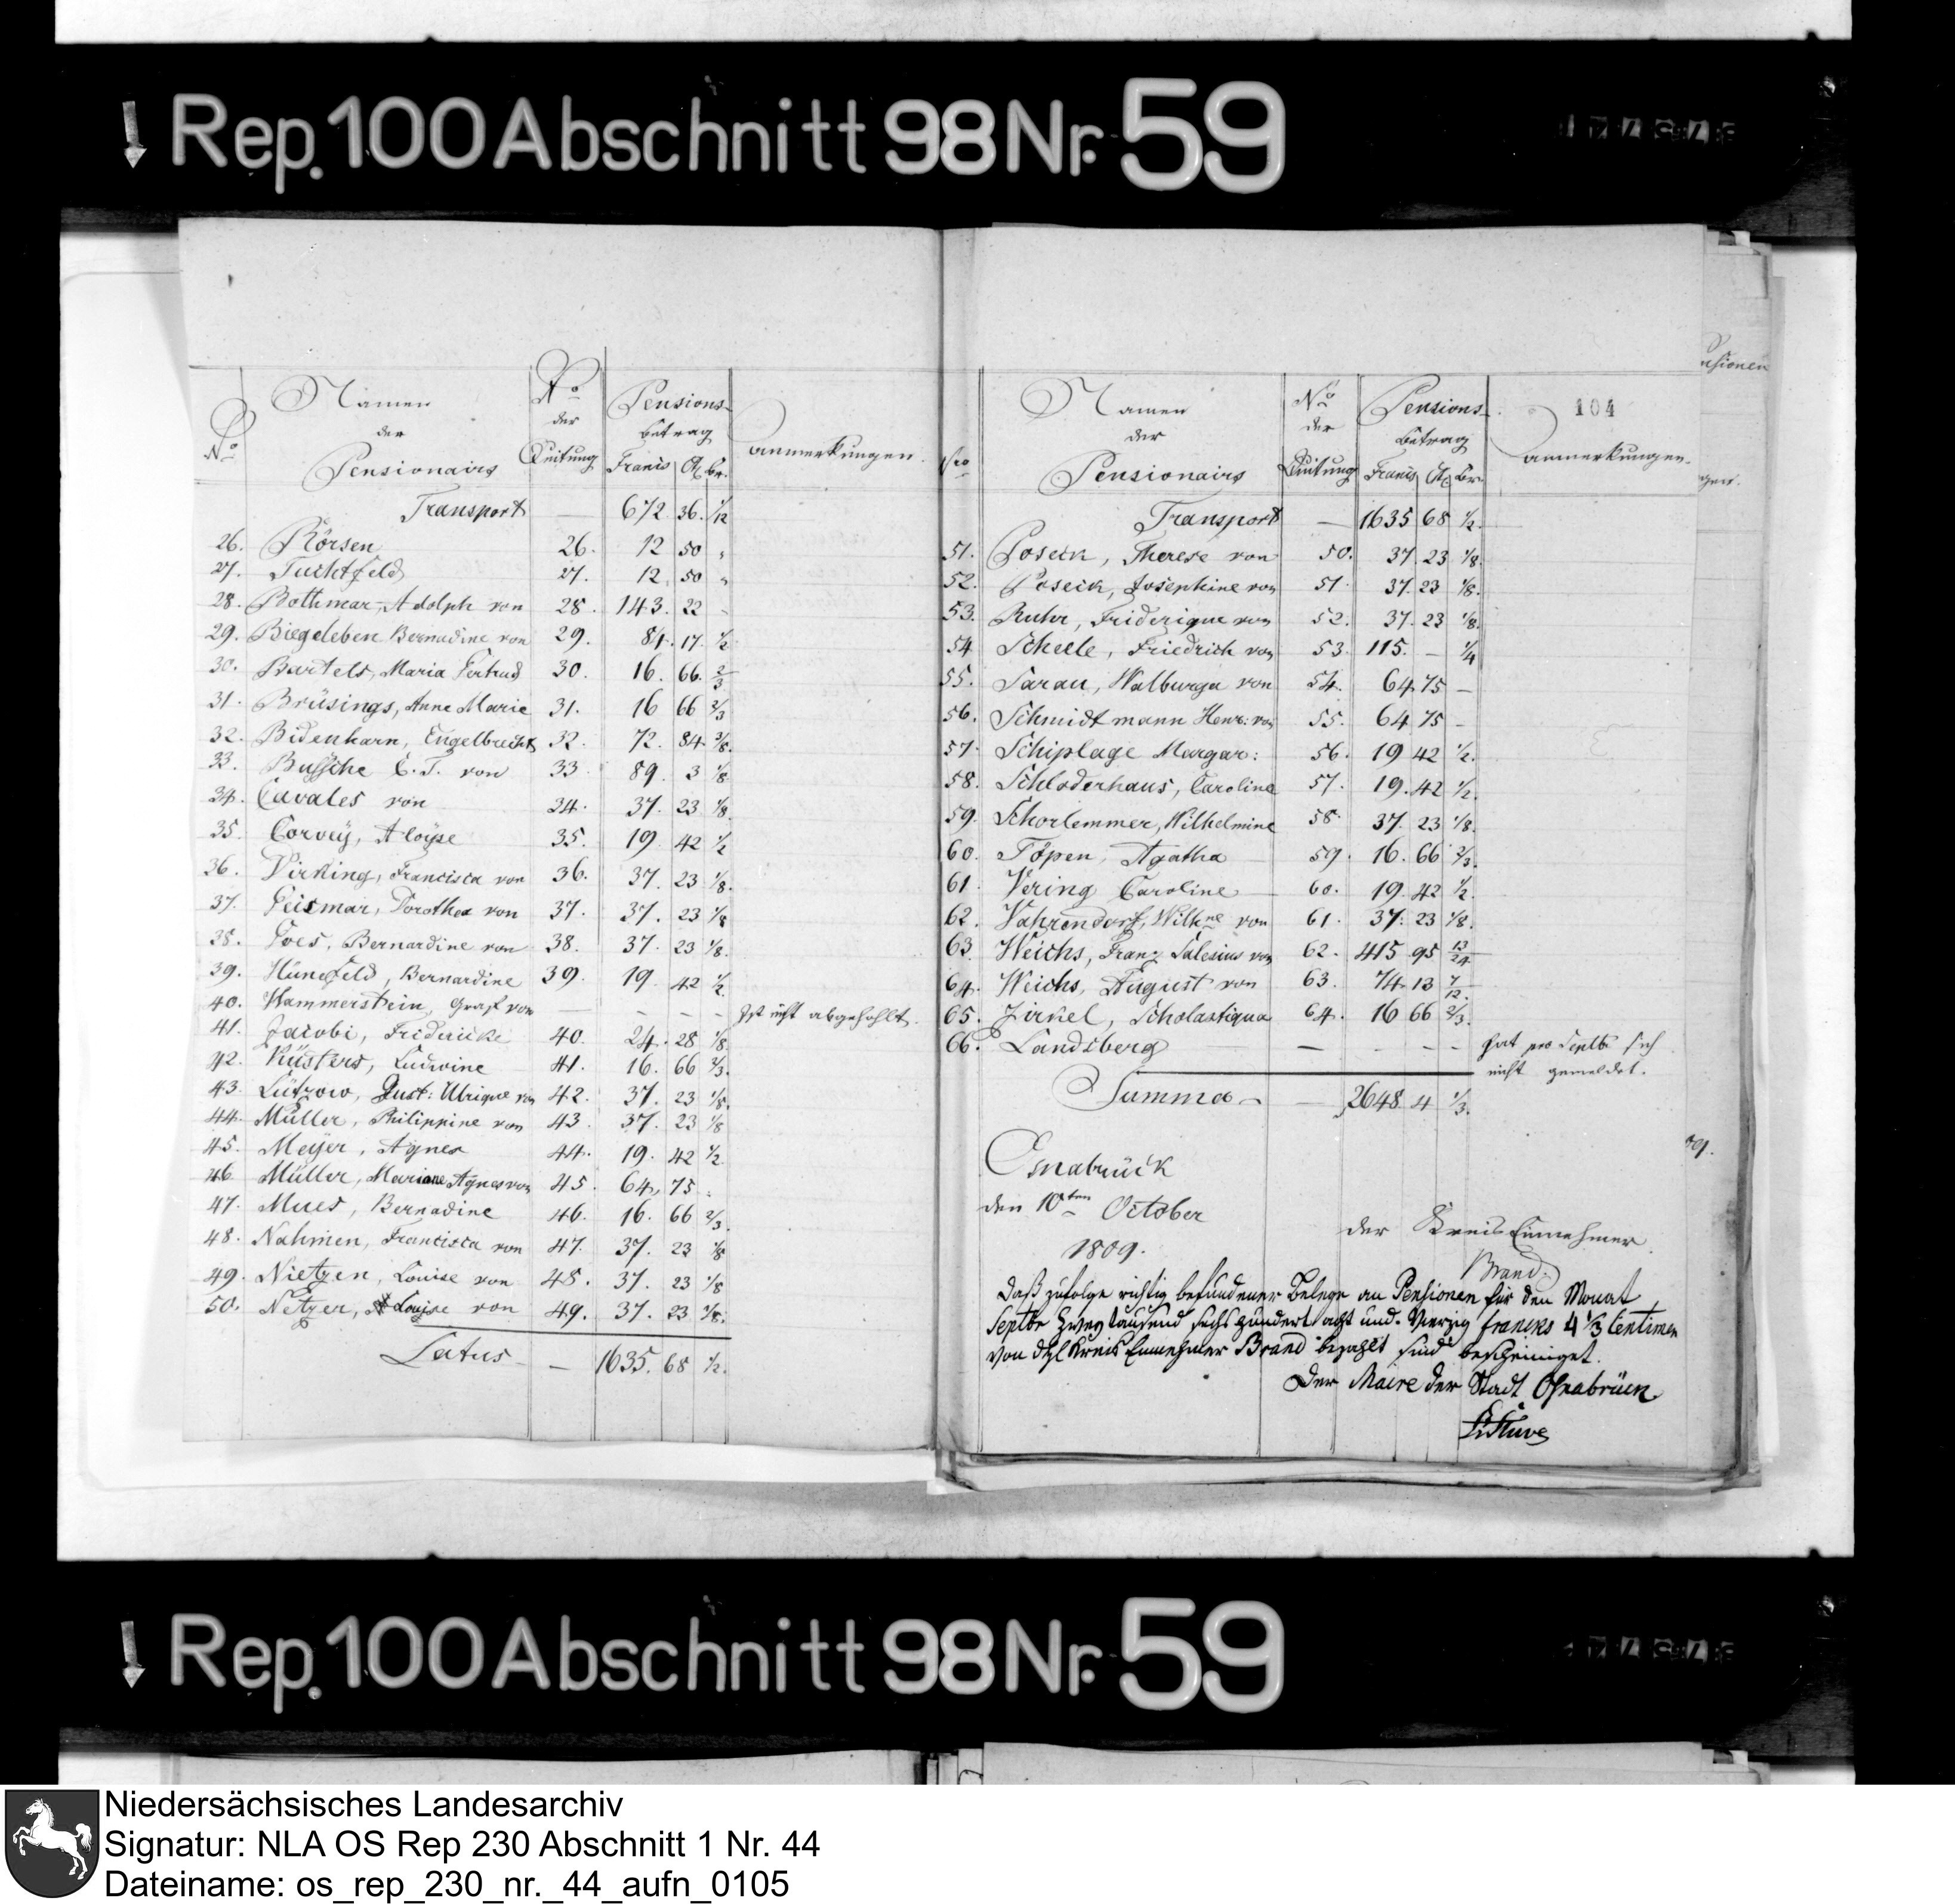 Rep. 100 Abschnitt 98 Nr. 59
No Namen der Pensionairs No der Quitung Pensions betrag Francs Ct. Br. anmerkungen.
Transport — 672. 36. 1/12
26. Körsen 26. 12 50 "
27. Tuchtfeld 27. 12 50 "
28. Bothmar, Adolph von 28. 143. 22 -
29. Biegeleben Bernadine von 29. 84. 17. 1/2
30. Bartels, Maria Gertrud 30. 16. 66. 2/3
31. Brüsings, Anne Marie 31. 16 66 2/3
32. Bidenharn, Engelbrecht 32. 72. 84. 3/8.
33. Bussche C. T. von 33. 89. 3 1/8
34. Cavales von 34. 37. 23 1/8.
35. Corveÿ, Aloÿse 35. 19 42 1/2
36. Dirking, Francisca von 36. 37. 23 1/8.
37. Geismar, Dorothea von 37. 37. 23 1/8
38. Goes, Bernardine von 38. 37. 23 1/8.
39. Hünefeld, Bernardine 39. 19. 42 1/2
40. Hammerstein, Graf von — - - - Ist nicht abgehohlt.
41. Jacobi, Fridericke 40. 24. 28 1/8
42. Küsters, Ludwine 41. 16. 66 2/3.
43. Lützow, Gust: Ulrique von 42. 37. 23 1/8.
44. Müller, Philippine von 43. 37. 23 1/8
45. Meÿer, Agnes 44. 19. 42 1/2
46. Müller, Mariane Agnes von 45. 64. 75 "
47. Mues, Bernadine 46. 16. 66 2/3.
48. Nahmen, Francisca von 47. 37. 23 1/8
49. Nietzen, Louise von 48. 37. 23 1/8
50. Netzer, Louise von 49. 37. 23 1/8.
Latus — 1635. 68 1/2.
104
Nro Namen der Pensionairs No der Quitung Pensions betrag Francs Ct. Br. anmerkungen.
Transport — 1635 68 1/2.
51. Poseck, Therese von 50. 37. 23 1/8.
52. Poseck, Josephine von 51. 37. 23 1/8.
53. Ruhr, Friderique von 52. 37. 23 1/8.
54 Scheele, Friedrich von 53. 115. - 1/4
55. Sarau, Walburga von 54. 64 75 —
56. Schmidtmann Henr: von 55. 64 75 —
57. Schiplage Margar: 56. 19 42 1/2.
58. Schloderhaus, Caroline 57. 19. 42 1/2.
59. Schorlemmer, Wilhelmine 58. 37. 23 1/8.
60. Töpen, Agatha 59. 16. 66 2/3.
61. Vering Caroline 60. 19. 42 1/2.
62. Vahrendorf, Wilhne von 61. 37. 23 1/8.
63. Weichs, Franz Salesius von 62. 415 95 13/24
64. Weichs, August von 63. 74. 13 7/12.
65. Zirkel, Scholastiqua 64. 16 66 2/3.
66. Landsberg — - - - hat pro Septbr sich
nicht gemeldet.
Summa — 2648 4 1/3.
Osnabrück
den 10ten October
1809.
der Kreis Einnehmer
Brand.
Daß zufolge richtig befundener Belege an Pensionen für den Monat
Septbr Zwey tausend sechs hundert acht und Vierzig francks 4 1/3 Centimen
von dhl Kreis Einnehmer Brand bezahlt sind bescheiniget.
Der Maire der Stadt Osnabrück
Stüve
Rep. 100 Abschnitt 98 Nr. 59
Niedersächsisches Landesarchiv
Signatur: NLA OS Rep 230 Abschnitt 1 Nr. 44
Dateiname: os_rep_230_nr._44_aufn_0105